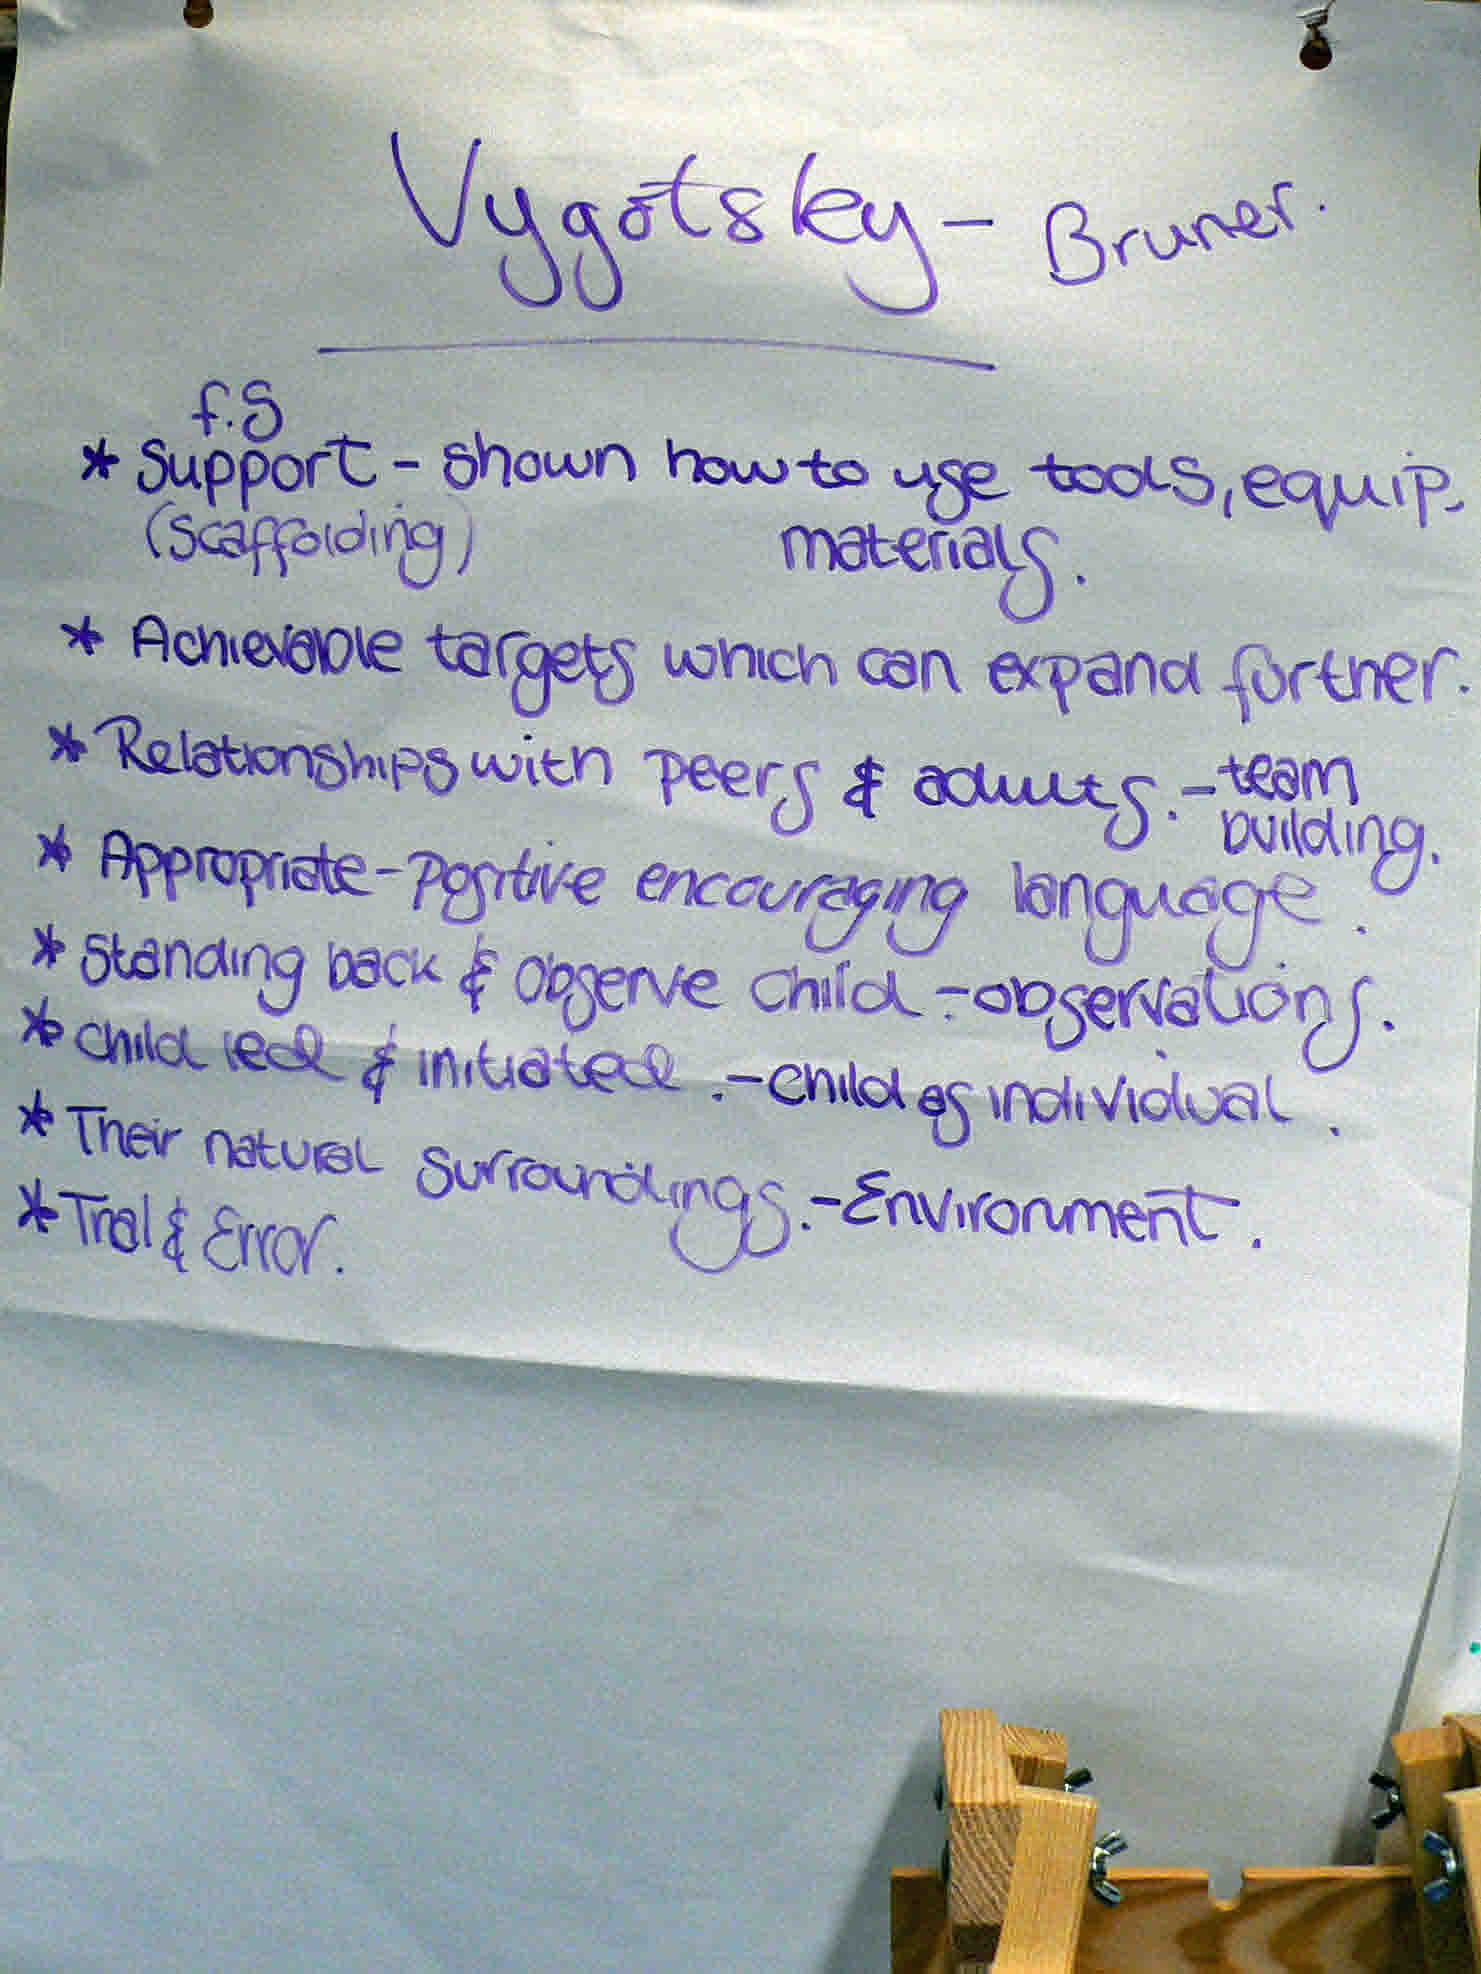 Vygotsky - Bruner.
f.S
* Support - shown how to use tools, equip.
(scaffolding) materials.
* Achievable targets which can expand further.
* Relationships with peers & adults. - team
building.
* Appropriate - positive encouraging language.
* Standing back & observe child - observations.
* child led & initiated. - child as individual.
* Their natural surroundings. - Environment.
* Trial & Error.